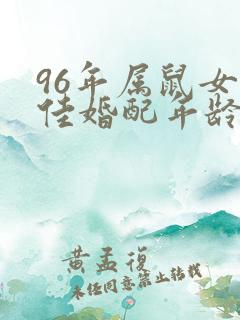 96年属鼠女
佳婚配年龄
黄孟復
未经同意禁止转载